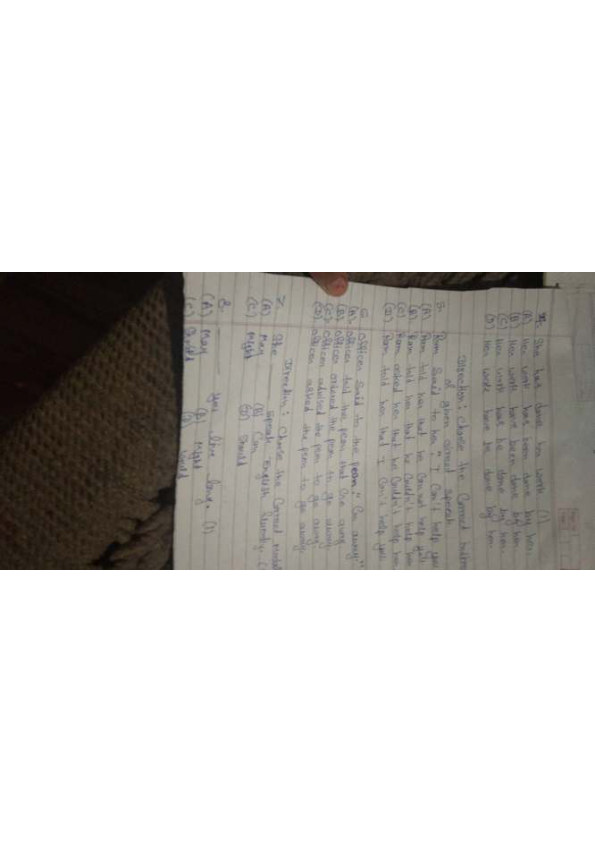 4. She has done her work (1)
(A) Her work has been done by her.
(B) Her work have been done by her.
(C) Her work has be done by her.
(D) Her work have be done by her.
Direction: Choose the Correct
of given direct speech
5. Ram Said to her "I Can't help you
(A) Ram told her that he Can not help you.
(B) Ram told her that he Couldn't help her
(C) Ram asked her that he Couldn't help her
(D) Ram told her that I Can't help you.
6. Officer Said to the peon "Go away"
(A) officer told the peon that Goe away
(B) officer ordered the peon to go away
(C) officer advised the peon to go away
(D) officer asked the peon to go away.
Direction: Choose the Correct modal
7. She ____ Speak English fluently. (
(A) May (B) Can
(C) Might (D) Should
8. ____ you live long. (1)
(A) May (B) Might
(C) Should (D) Would